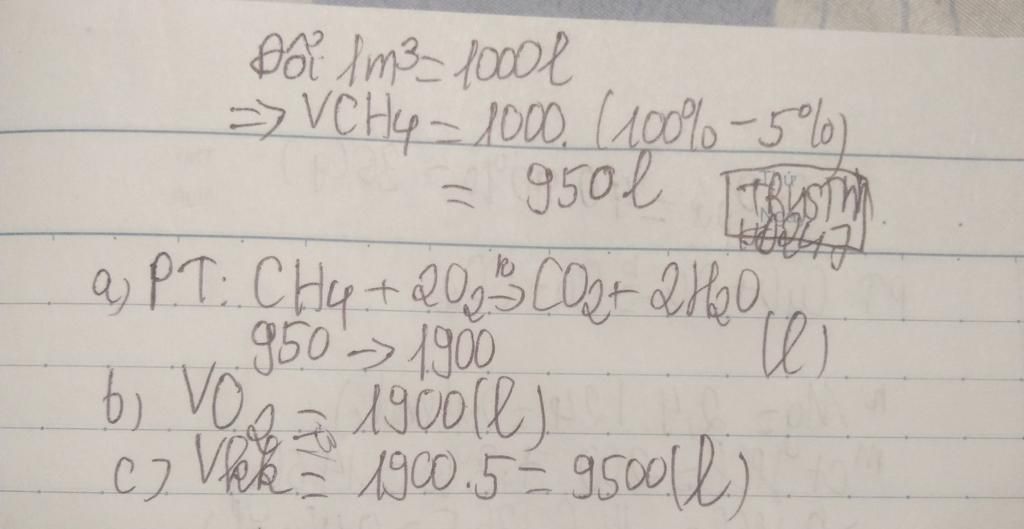 Đổi 1m³ = 1000l
=> VCH4 = 1000. (100% - 5%)
= 950l
a) PT: CH4 + 2O2 -> CO2 + 2H2O
950 -> 1900 (l)
b) VO2 = 1900(l)
c) Vkk = 1900.5 = 9500(l)